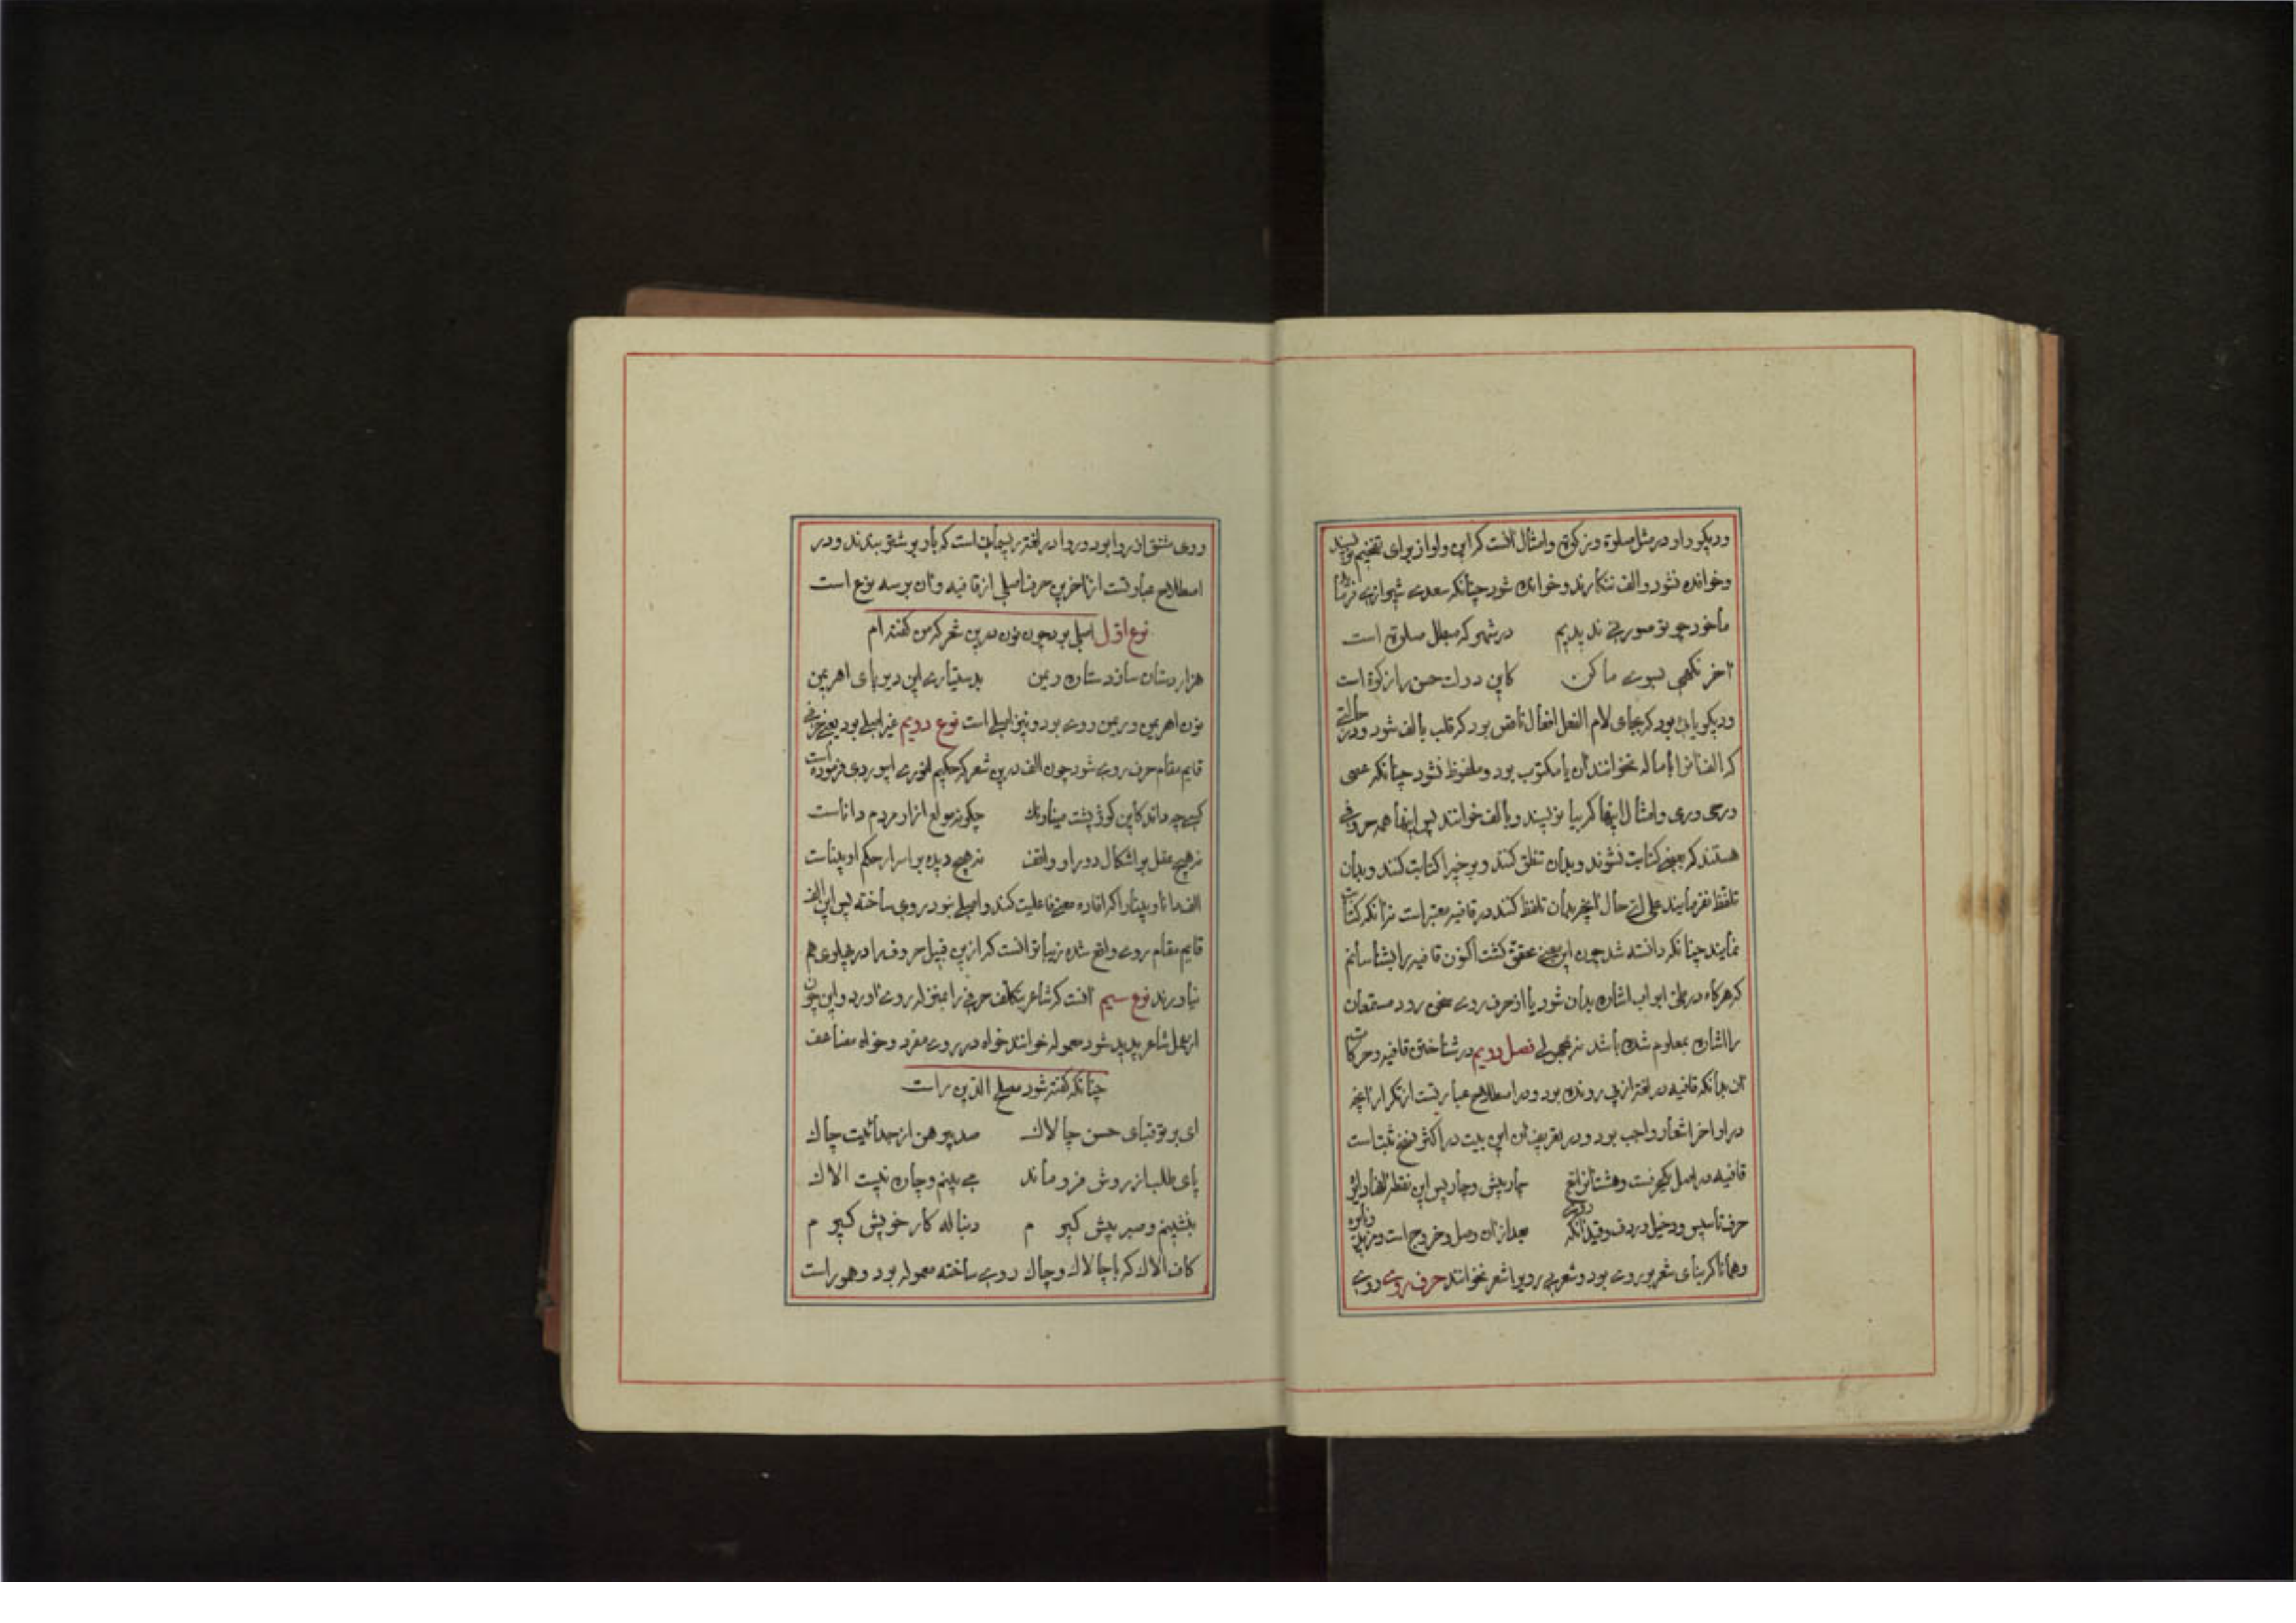 ودیکر واو در مثل صلوة و زکوة و امثال انست که این واو از برای تفخیم نویسند
وخوانده نشود والف ننکارند وخوانده شود چنانکه سعدی شیرازی فرماید
ما خود چو تو صورتی ندیدیم در شهر که مبطل صلوة است
آخر نکهی بسوی ما کن کاین دولت حسن را زکوة است
ودیکر یائی بود که بجای لام الفعل افعال ناقص بود که قلب بالف شود ودر حالتی
که الف را باماله نخوانند ان یا مکتوب بود و ملفوظ نشود چنانکه عسی
در وری وامثال اینها که بیا نویسند و بالف خوانند پس اینها همه حروفی
هستند که بعضی کتابت نشوند وبدان تنطق کنند وبرخیرا کتابت کنند وبدان
تلفظ نفرمایند علی ای حال آنچه بدان تلفظ کنند در قافیه معتبر است نه آنکه کتابت
نمایند چنانکه دانسته شد چون این معنی محقق کشت اکنون قافیه را بشناسانم
که هرکاه در طی ابواب اشاره بدان شود یا از حرف روی سخن رود مستمعان
را اشاره بمعلوم شده باشد نه بمجهولی فصل دویم در شناختن قافیه وحرکات
ان بدانکه قافیه در لغة از پی رونده بود ودر اصطلاح عبارتست از تکرار انچه
در اواخر اشعار واجب بود ودر تعریف ان این بیت در اکثر نسخ ثبت است
قافیه در اصل یکحرفست وهشت انرا تبع چار پیش وچار پس این نقطه انها دایره
حرف تاسیس ودخیل وردف وقید انکه روی بعد از ان وصل وخروج است ومزید ونایره
وهمانا که بنای شعر بر روی بود وشعر بی رویرا شعر نخوانند حرف روی روی
وروی مشتق از روا بود وروا در لغة ریسمانی است که بار بر شتر ببندند ودر
اصطلاح عبارتست از اخرین حرف اصلی از قافیه وان بر سه نوع است
نوع اول اصلی بود چون نون درین شعر که من کفته ام
هزار دستان سازد ستاره ریمن بدستیاری این دیر پای اهریمن
نون اهریمن وریمن روی بود ونیز اصلی است نوع دویم غیر اصلی بود یعنی حرفی
قایم مقام حرف روی شود چون الف درین شعر که حکیم انوری ابیوردی فرموده است
کسی چه داند کاین کوژ پشت مینا رنک چکونه مولع ازار مردم داناست
نه هیچ عقل بر اشکال دور او واقف نه هیچ دیده بر اسرار حکم او بیناست
الف دانا وبینا را که افاده معنی فاعلیت کند واصلی نبود روی ساخته پس این الف
قایم مقام روی واقع شده زیبا تر انست که ازین قبیل حروف را در پهلوی هم
نیاورند نوع سیم انست که شاعر بتکلف حرفی را بمنزله روی اورد واین چون
از عمل شاعر پدید شود معموله خوانند خواه در روی مفرد وخواه مضاعف
چنانکه کفته شود مصلح الدین راست
ای بر تو قبای حسن چالاک صد پیرهن از جدائیت چاک
پای طلب از روش فرو ماند می بینم وچاره نیست الاک
بنشینم وصبر پیش کیرم دنباله کار خویش کیرم
کاف الاک که با چالاک وچاک روی ساخته معموله بود وهموراست